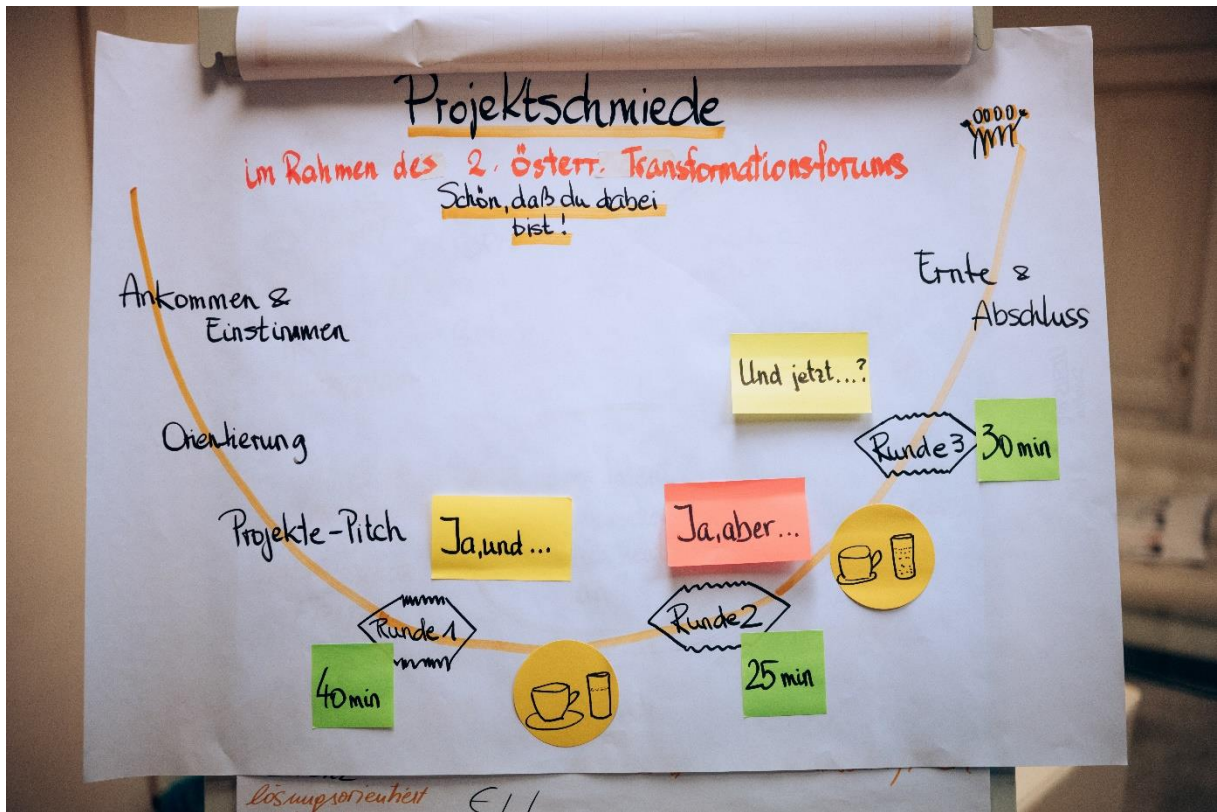 Projektschmiede
im Rahmen des 2. österr. Transformationsforums
Schön, daß du dabei
bist!
Ankommen &
Einstimmen
Orientierung
Projekte-Pitch
Ja, und...
Runde 1
40 min
Ja, aber...
Runde 2
25 min
Und jetzt...?
Runde 3
30 min
Ernte &
Abschluss
lösungsorientiert